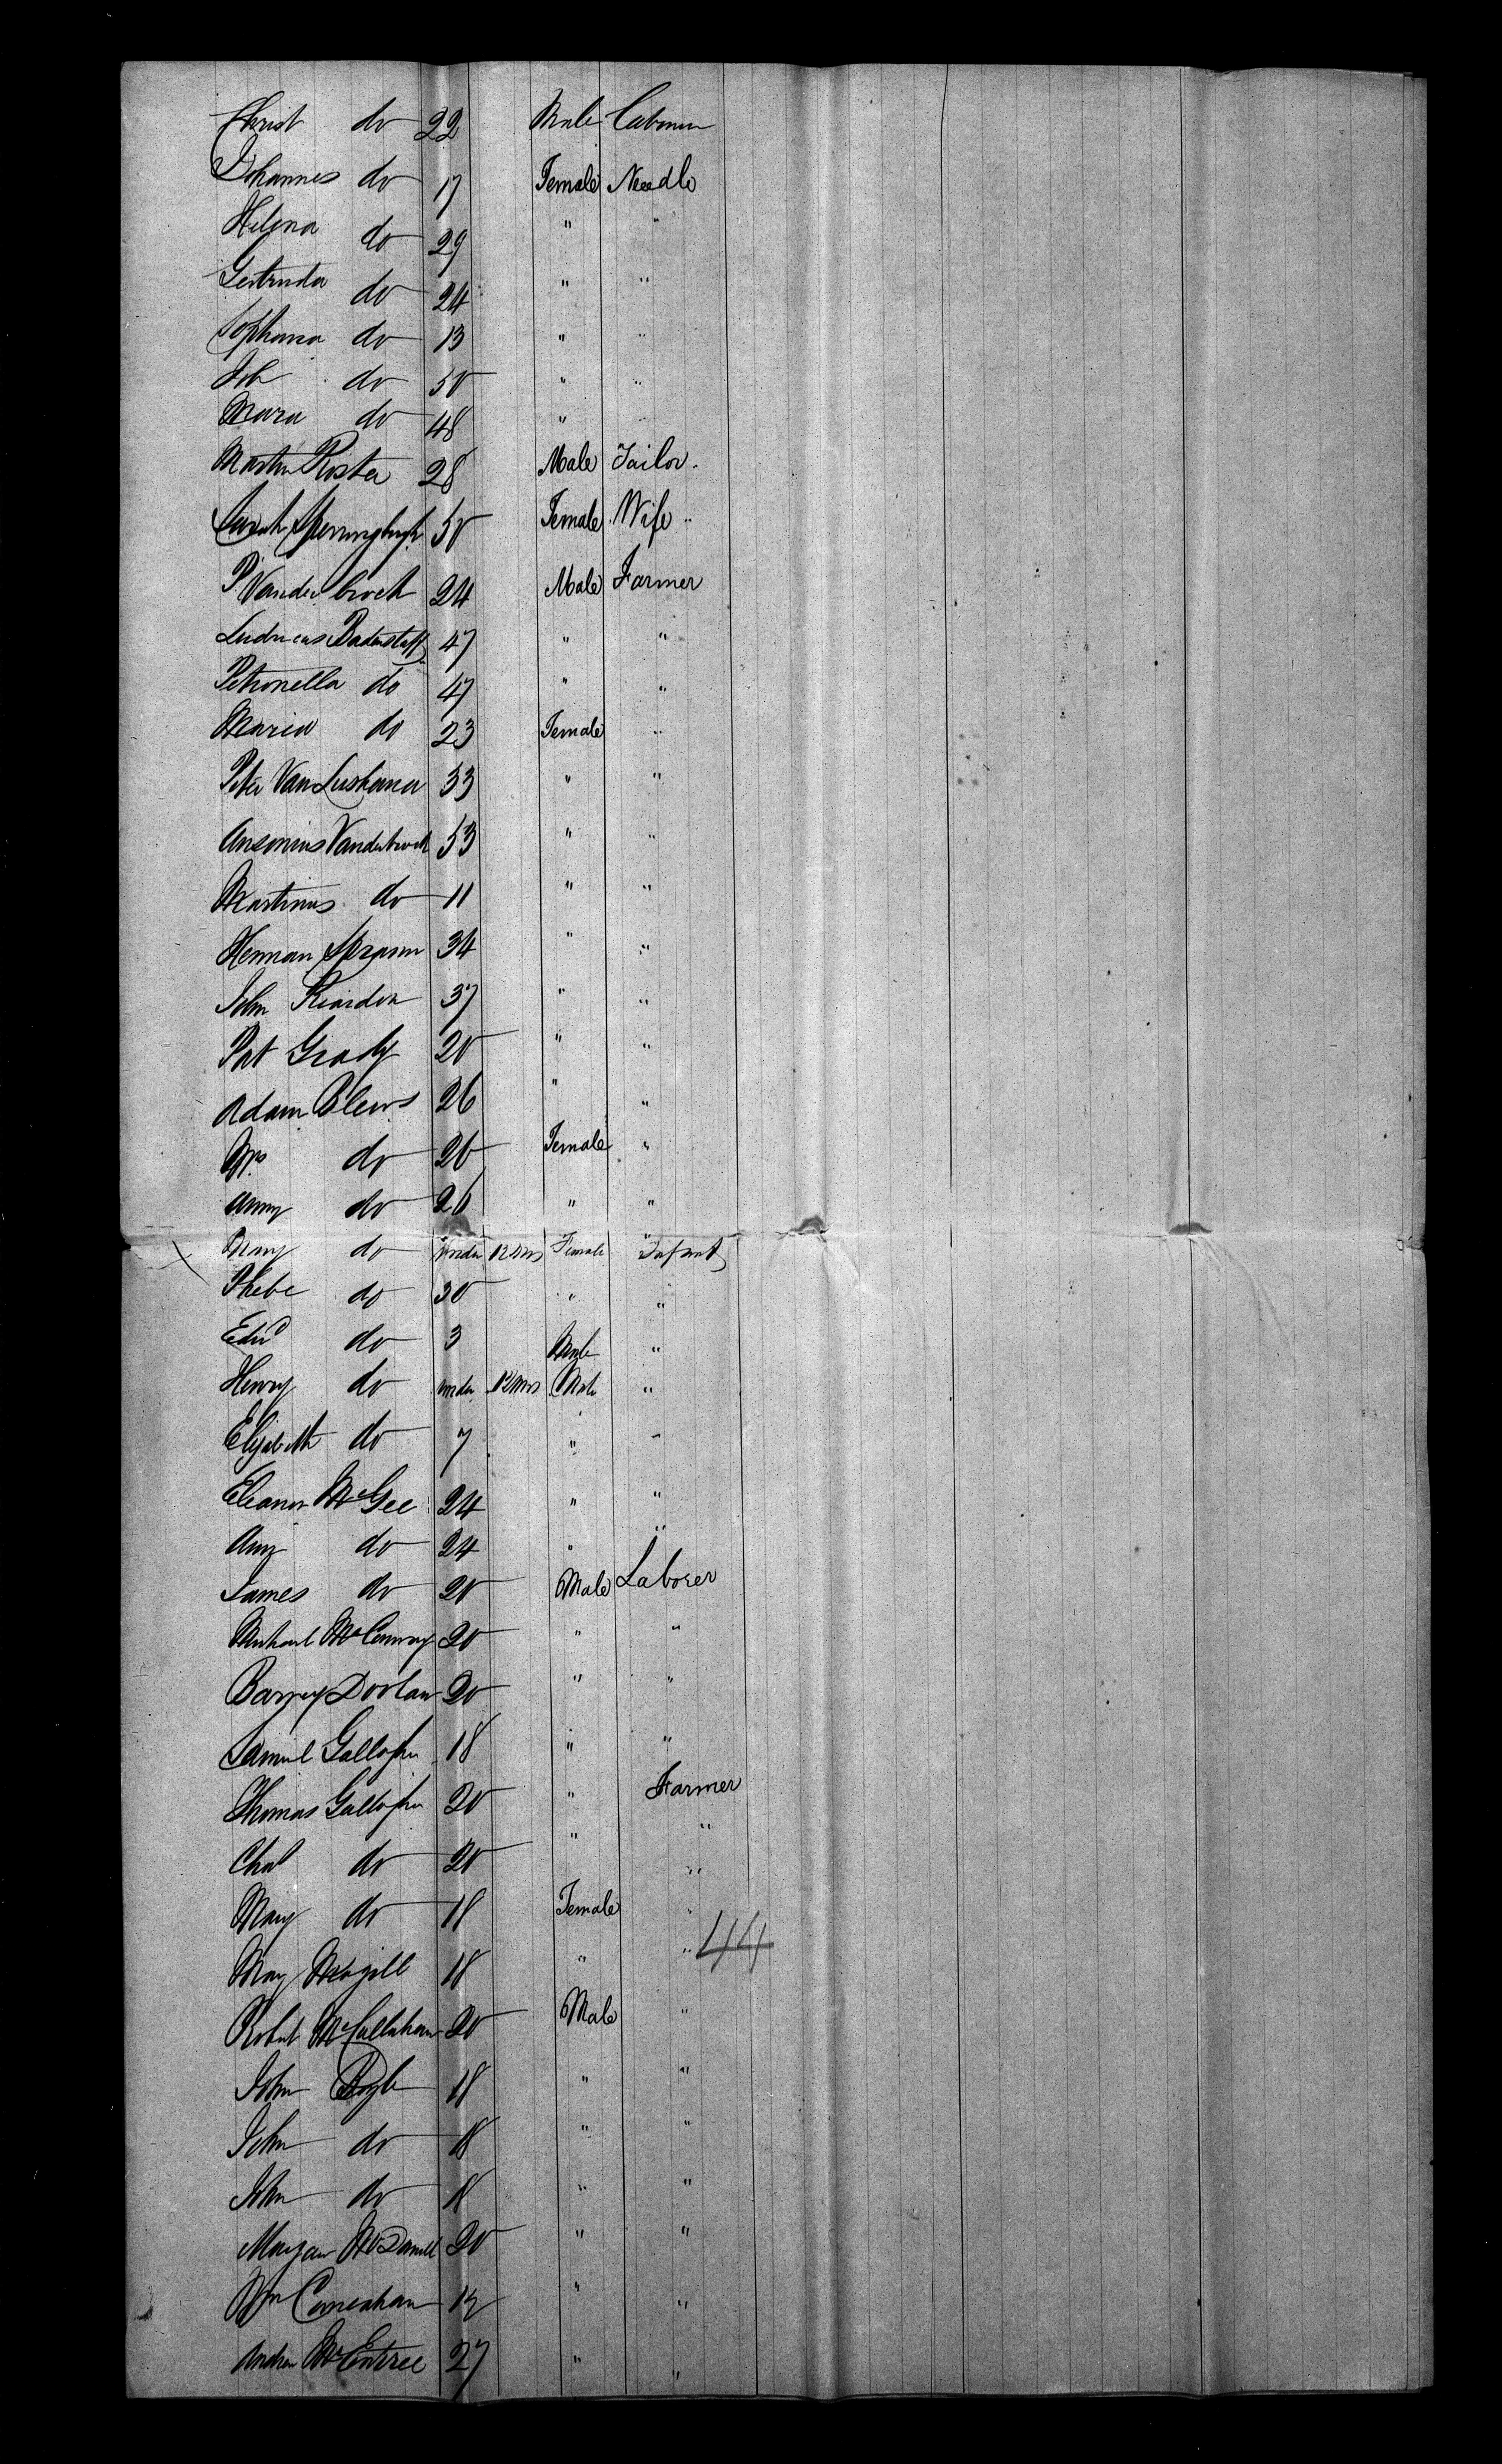 Christ do 22 Male
Johannes do 17 Female Needle
Helena do 29 " "
Gertruda do 24 " "
Sophana do 13 " "
Joh do 50 " "
Mara do 48 "
Martin Rosta 28 Male Tailor.
Sarah 50 Female Wife "
P. Vanderbrock 24 Male Farmer
Ludvicus Badenstaff 47 " "
Petronella do 47 " "
Maria do 23 Female "
Peter Van 33 " "
Ansonius Vanderbrock 53 " "
Martinus do 11 " "
Herman 34 " "
John Riordon 37 " "
Pat Grady 20 " "
Adam Blews 26 " "
Mrs do 20 Female "
Anny do 26 " "
Mary do Under 12 Mos Female Infant
Phebe do 30 " "
Edwd do 3 Male "
Henry do under 12 Mos Male "
Elizabeth do 7 " "
Eleanor McGee 24 " "
Ann do 24 " "
James do 20 Male Laborer
Michael McConway 20 " "
Barney Doolan 20 " "
Samuel Gallagher 18 " "
Thomas Gallagher 20 " Farmer
Chas do 20 " "
Mary do 18 Female "
May Magill 18 " " 44
Robert McCallahan 20 Male "
John Boyle 18 " "
John do 18 " "
John do 18 " "
McDaniell 20 " "
Wm 12 " "
Andrew McEntree 27 " "